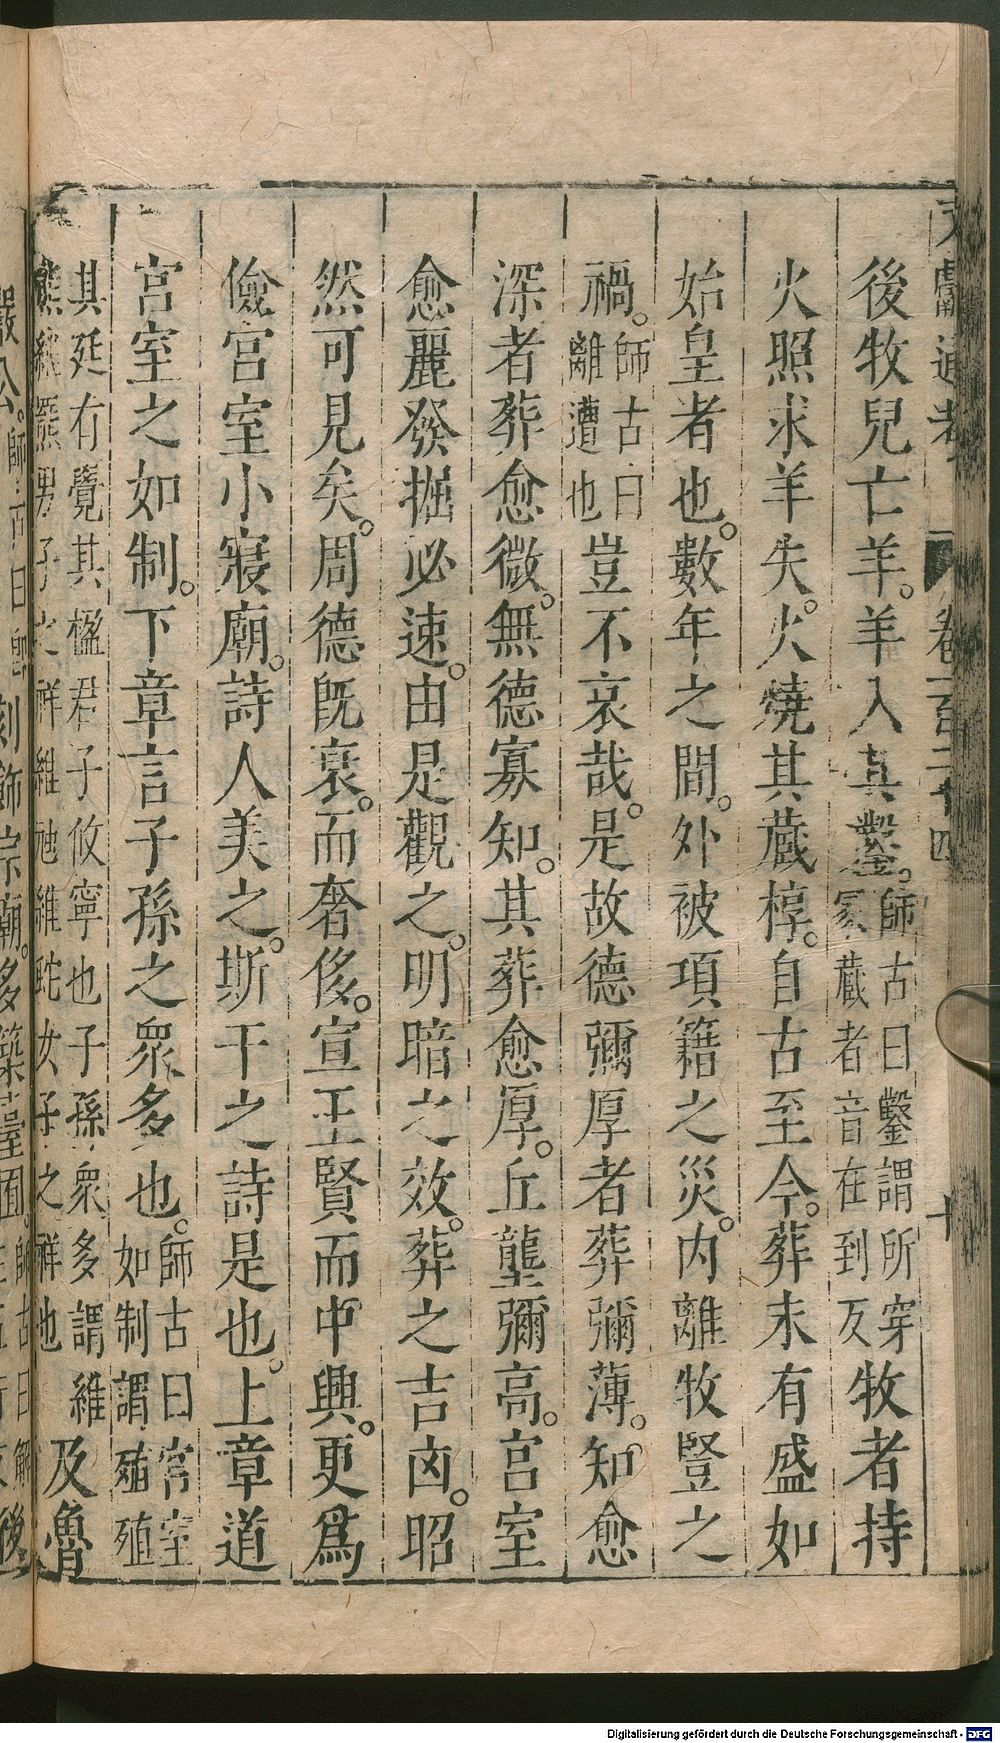 文獻通考 卷一百二十四 十
後牧兒亡羊。羊入其鑿。師古曰鑿謂所穿冢藏者音在到反牧者持
火照求羊失。火燒其藏椁。自古至今。葬未有盛如
始皇者也。數年之間。外被項籍之災。內離牧豎之
禍。師古曰離遭也豈不哀哉。是故德彌厚者葬彌薄。知愈
深者葬愈微。無德寡知。其葬愈厚。丘壟彌高。宮室
愈麗發掘必速。由是觀之。明暗之效。葬之吉凶。昭
然可見矣。周德旣衰。而奢侈。宣王賢而中興。更爲
儉宮室小寢廟。詩人美之。斯干之詩是也。上章道
宮室之如制。下章言子孫之衆多也。師古曰宮室如制謂殖殖
其廷有覺其楹君子攸寧也子孫衆多謂維熊維羆男子之祥維虺維蛇女子之祥也及魯
嚴公。刻飾宗廟。多築臺囿。後
Digitalisierung gefördert durch die Deutsche Forschungsgemeinschaft - DFG